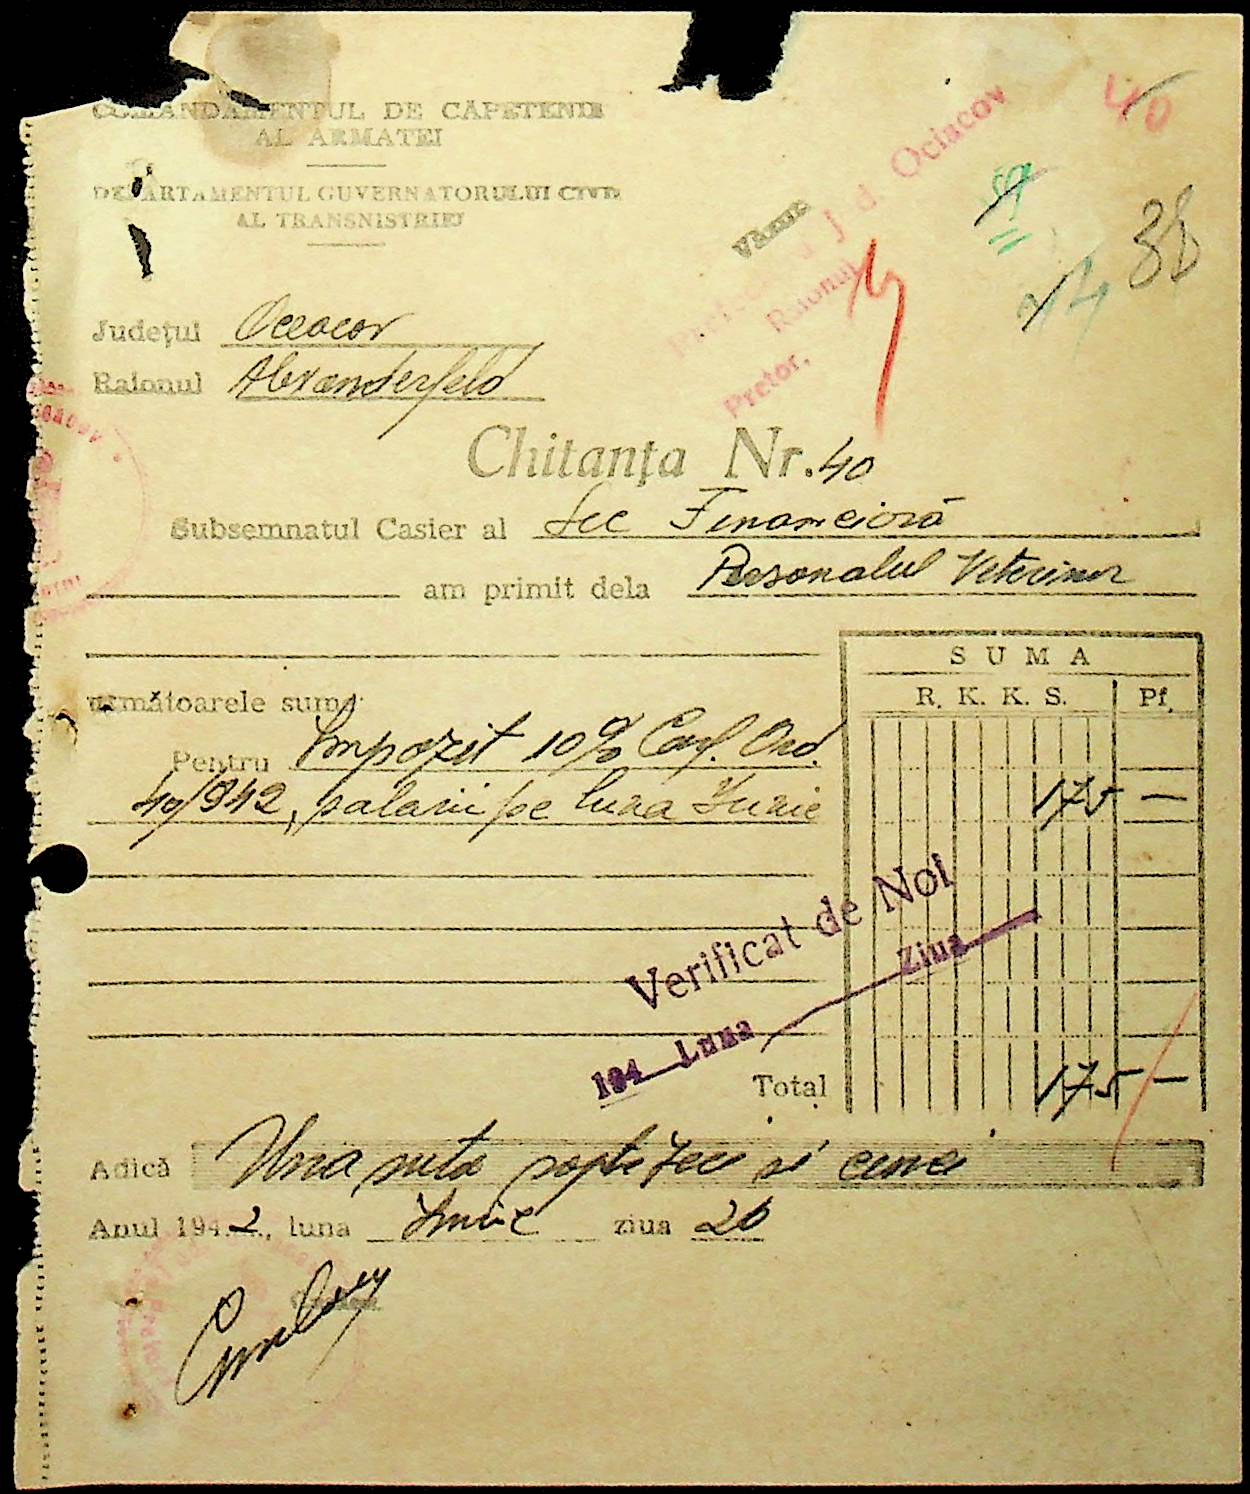 COMANDAMENTUL DE CAPETENIE
AL ARMATEI
DEPARTAMENTUL GUVERNATORULUI CIVIL
AL TRANSNISTRIEI
40
38
14
Vămuit
Prefectura Jud. Ociacov
Raionul
Pretor,
Judeţul Oceacov
Raionul Alexanderfeld
Chitanţa Nr. 40
Subsemnatul Casier al Sec Financiară
am primit dela Personalul Veterinar
SUMA
R. K. K. S. Pf.
următoarele sume
Pentru Impozit 10% Conf. Ord.
40/942, salarii pe luna Iunie 175 —
Verificat de Noi
194 Luna Ziua
Total 175 —
Adică Una suta șaptezeci si cinci
Anul 1942, luna Iunie ziua 26